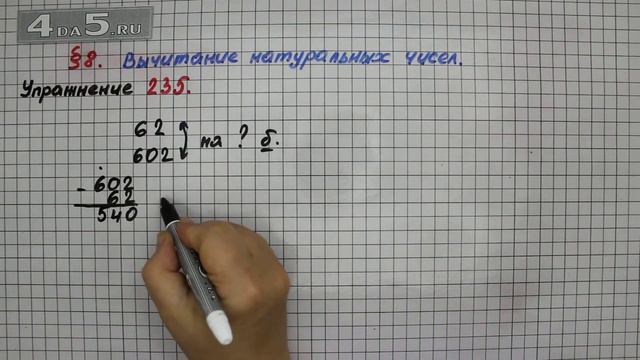 4DA5.RU
§8. Вычитание натуральных чисел.
Упражнение 235.
62
602 на ? б.
- 602
62
540